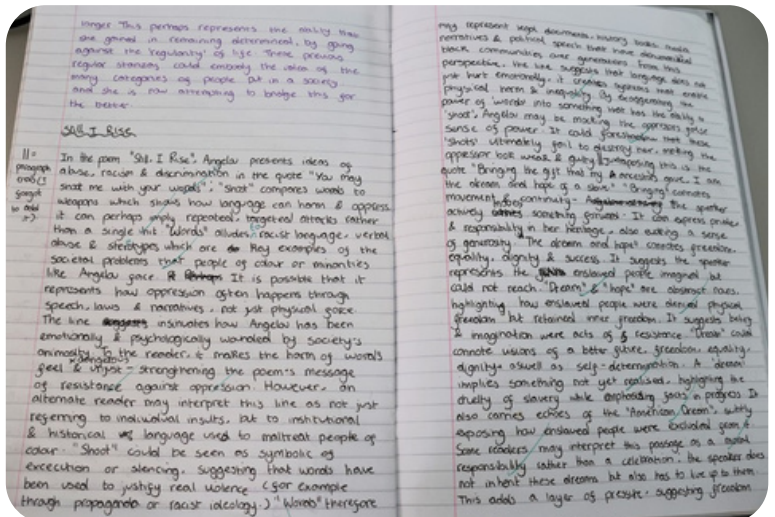 longer. This perhaps represents the ability that
she gained in remaining determined, by going
against the 'regularity' of life. These previous
regular stanzas could embody the idea of the
many categories of people put in a society
and she is now attempting to bridge this for
the better.
Still I Rise
|| =
paragraph
forgot
to add
In the poem "Still I Rise", Angelou presents ideas of
abuse, racism & discrimination in the quote "You may
shoot me with your words"; "Shoot" compares words to
weapons which shows how language can harm & oppress.
it can perhaps imply repeated, targeted attacks rather
than a single hit. "Words" alludes to racist language, verbal
abuse & sterotypes which are key examples of the
societal problems that people of colour or minorities
like Angelou face. It is possible that it
represents how oppression often happens through
speech, laws & narratives, not just physical force.
The line insinuates how Angelou has been
emotionally & psychologically wounded by society's
animosity. To the reader, it makes the harm of words
feel dangerous & unjust - strengthening the poem's message
of resistance against oppression. However, an
alternate reader may interpret this line as not just
referring to individual insults, but to institutional
& historical language used to maltreat people of
colour. "Shoot" could be seen as symbolic of
excecution or silencing, suggesting that words have
been used to justify real violence (for example
through propaganda or racist ideology.) "Words" therefore
may represent legal documents, history books, media
narratives & political speech that have dehumanised
black communities over generations. From this
perspective, the line suggests that language does not
just hurt emotionally, it creates systems that enable
physical harm & inequality. By exaggerating the
power of 'words' into something that has the ability to
'shoot', Angelou may be mocking the oppressors false
sense of power. It could foreshadow that these
'shots' ultimately fail to destroy her, making the
oppressor look weak & guilty. || Juxtaposing this is the
quote "Bringing the gift that my ancestors gave, I am
the dream and hope of a slave". "Bringing" connotes
movement & continuity - the speaker
actively moves something forward. It can express pride
& responsibility in her heritage, also evoking a sense
of generosity. "The dream and hope" connotes freedom,
equality, dignity & success. It suggests the speaker
represents the enslaved people imagined but
could not reach. "Dream" & "hope" are abstract nouns,
highlighting how enslaved people were denied physical
freedom but retained inner freedom. It suggests being
& imagination were acts of resistance. "Dream" could
connote visions of a better future, freedom, equality,
dignity aswell as self-determination. A 'dream'
implies something not yet realised, highlighting the
cruelty of slavery while emphasising goals in progress. It
also carries echoes of the "American Dream", subtly
exposing how enslaved people were excluded from it.
Some readers may interpret this passage as a moral
responsibility rather than a celebration, the speaker does
not inherit these dreams but also has to live up to them.
This adds a layer of pressure, suggesting freedom